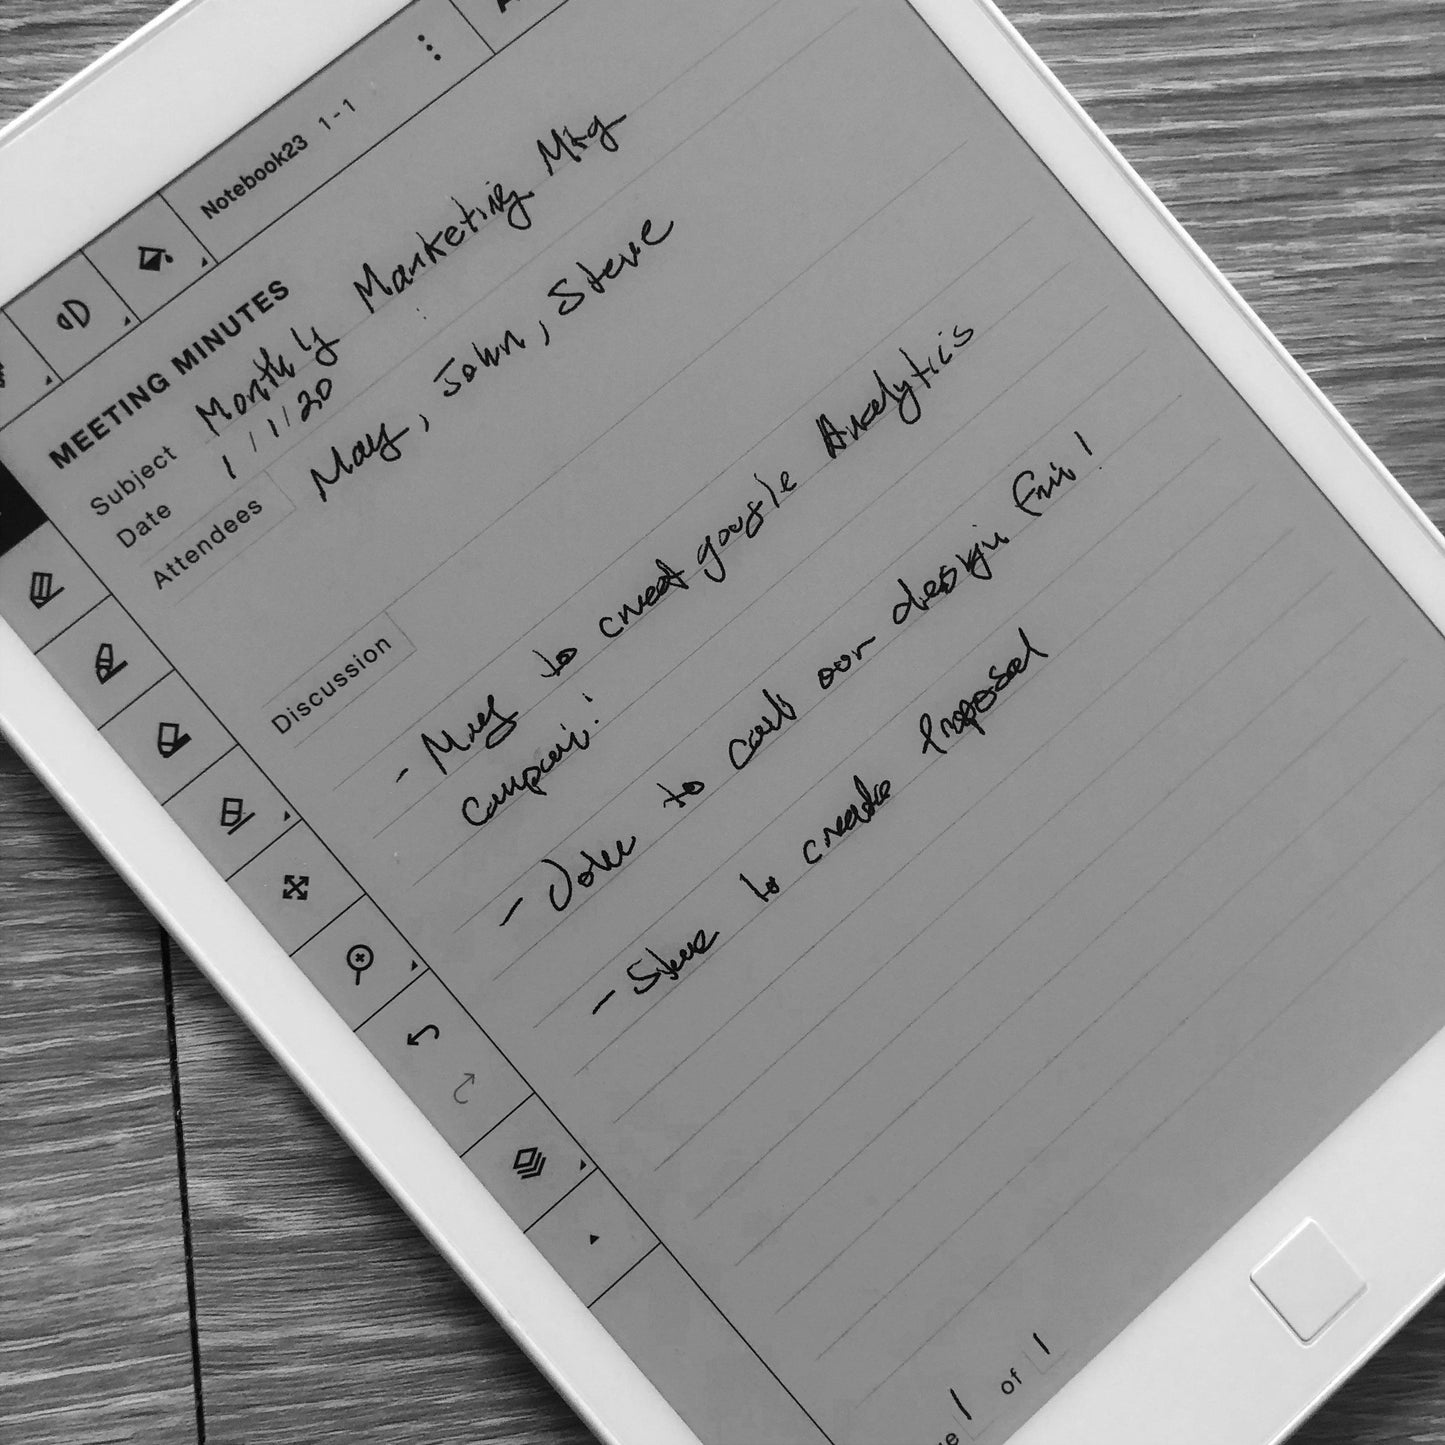 Notebook23 1-1
MEETING MINUTES
Subject Monthly Marketing Mtg
Date 1/1/20
Attendees May, John, Steve
Discussion
- May to creat google Analytics
- John to call our design firm!
- Steve to create Proposal
1 of 1